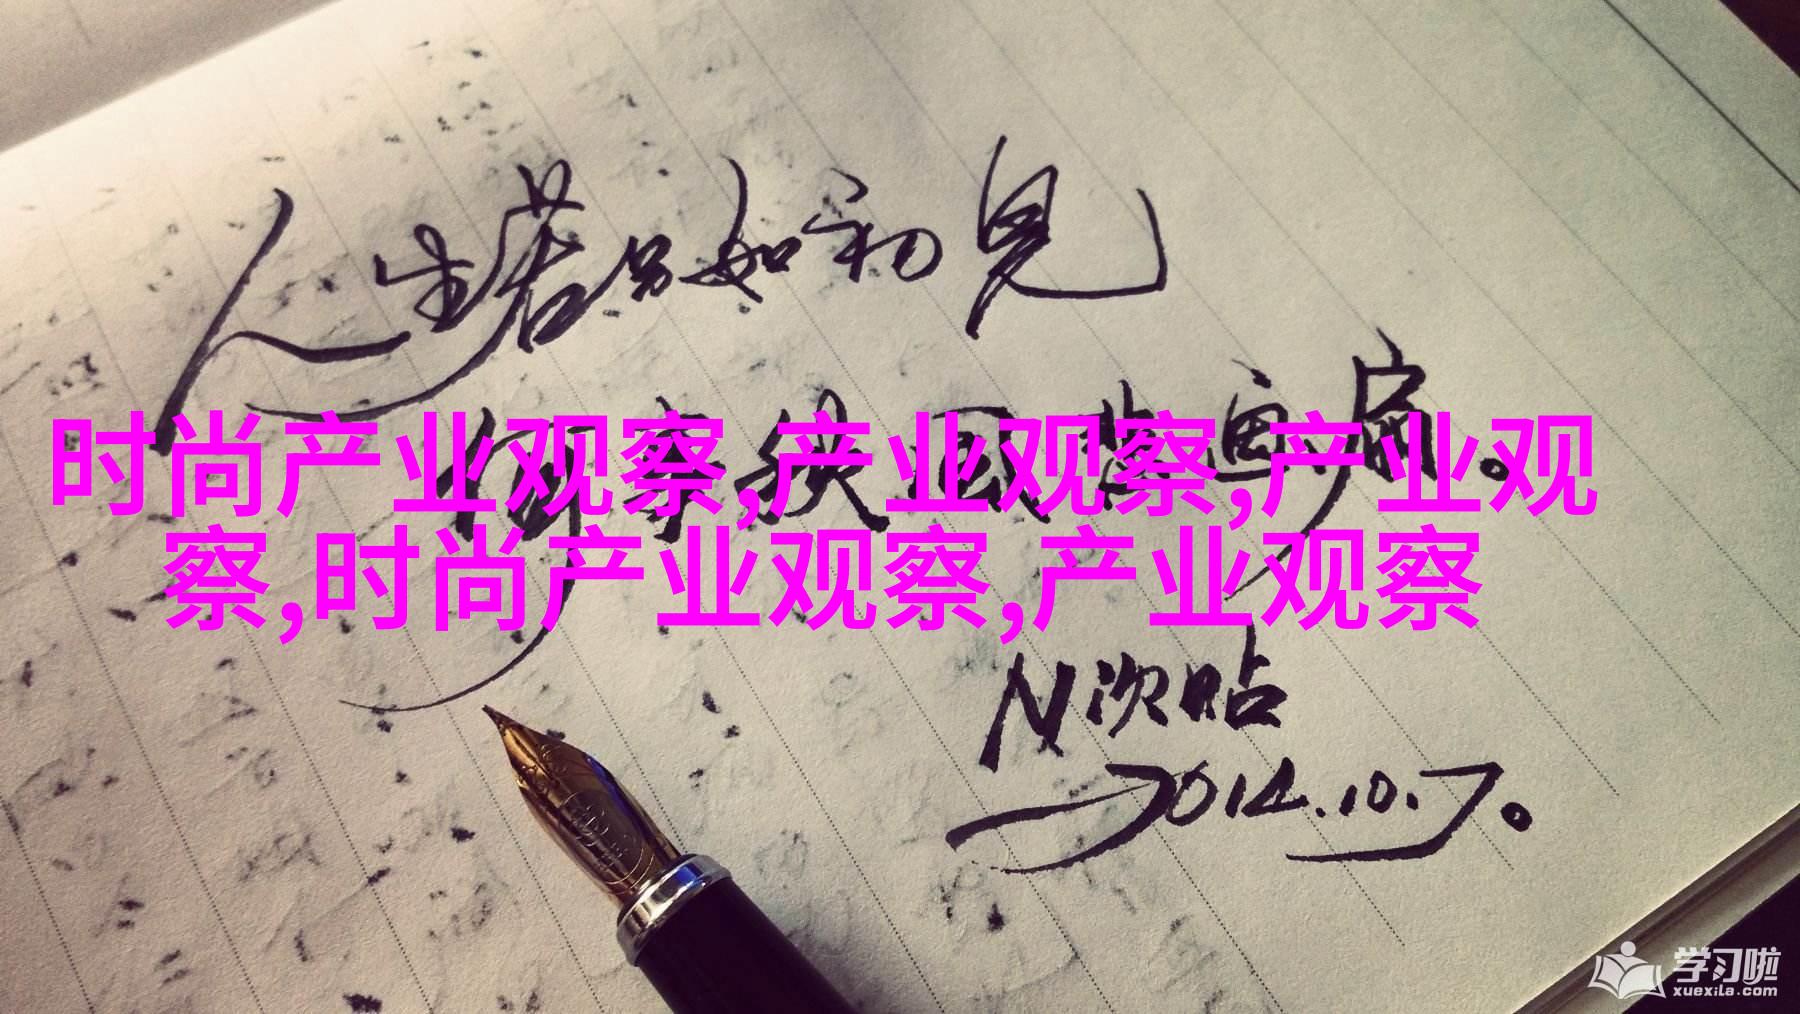 人生若只如初见
何事秋风悲画扇。
时尚产业观察,产业观察,产业观
察,时尚产业观察,产业观察
N次贴
2014.10.7。
学习啦
xuexila.com